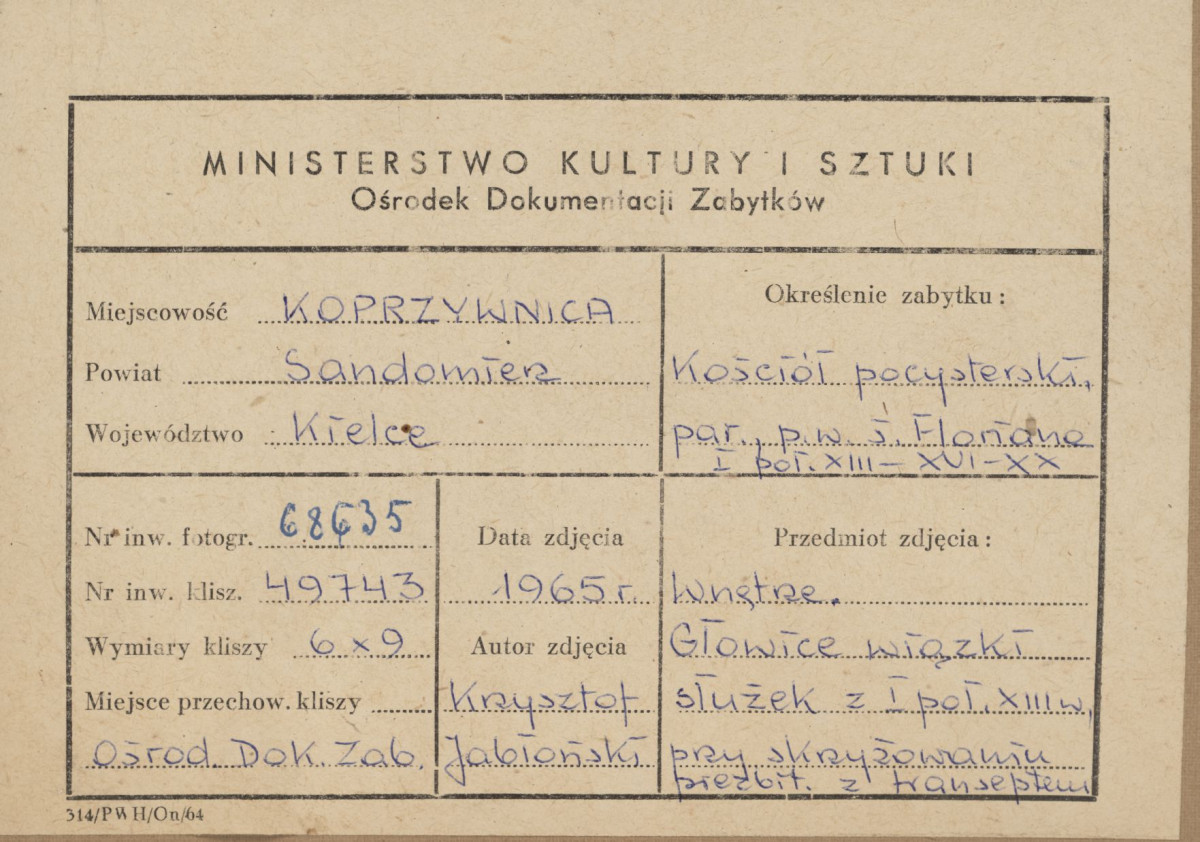 MINISTERSTWO KULTURY I SZTUKI
Ośrodek Dokumentacji Zabytków
Miejscowość KOPRZYWNICA
Powiat Sandomierz
Województwo Kielce
Określenie zabytku:
Kościół pocysterski,
par., p.w. ś. Floriana
I poł. XIII – XVI – XX
Nr inw. fotogr. 68635
Nr inw. klisz. 49743
Wymiary kliszy 6 x 9
Miejsce przechow. kliszy
Ośrod. Dok. Zab.
Data zdjęcia
1965 r.
Autor zdjęcia
Krzysztof
Jabłoński
Przedmiot zdjęcia:
Wnętrze.
Głowice wiązki
służek z I poł. XIII w,
przy skrzyżowaniu
prezbit. z transeptem
314/PWH/On/64